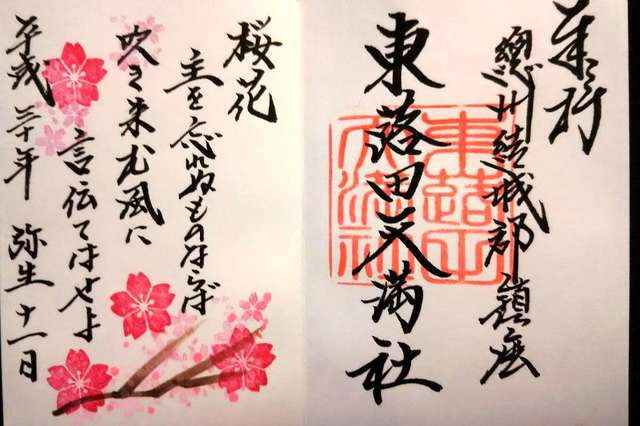 奉拝
總州結城郡鎮座
東蕗田天満社
東蕗田天満社
桜花
主を忘れぬものならば
吹き来む風に
言伝てはせよ
平成三十年 弥生十一日